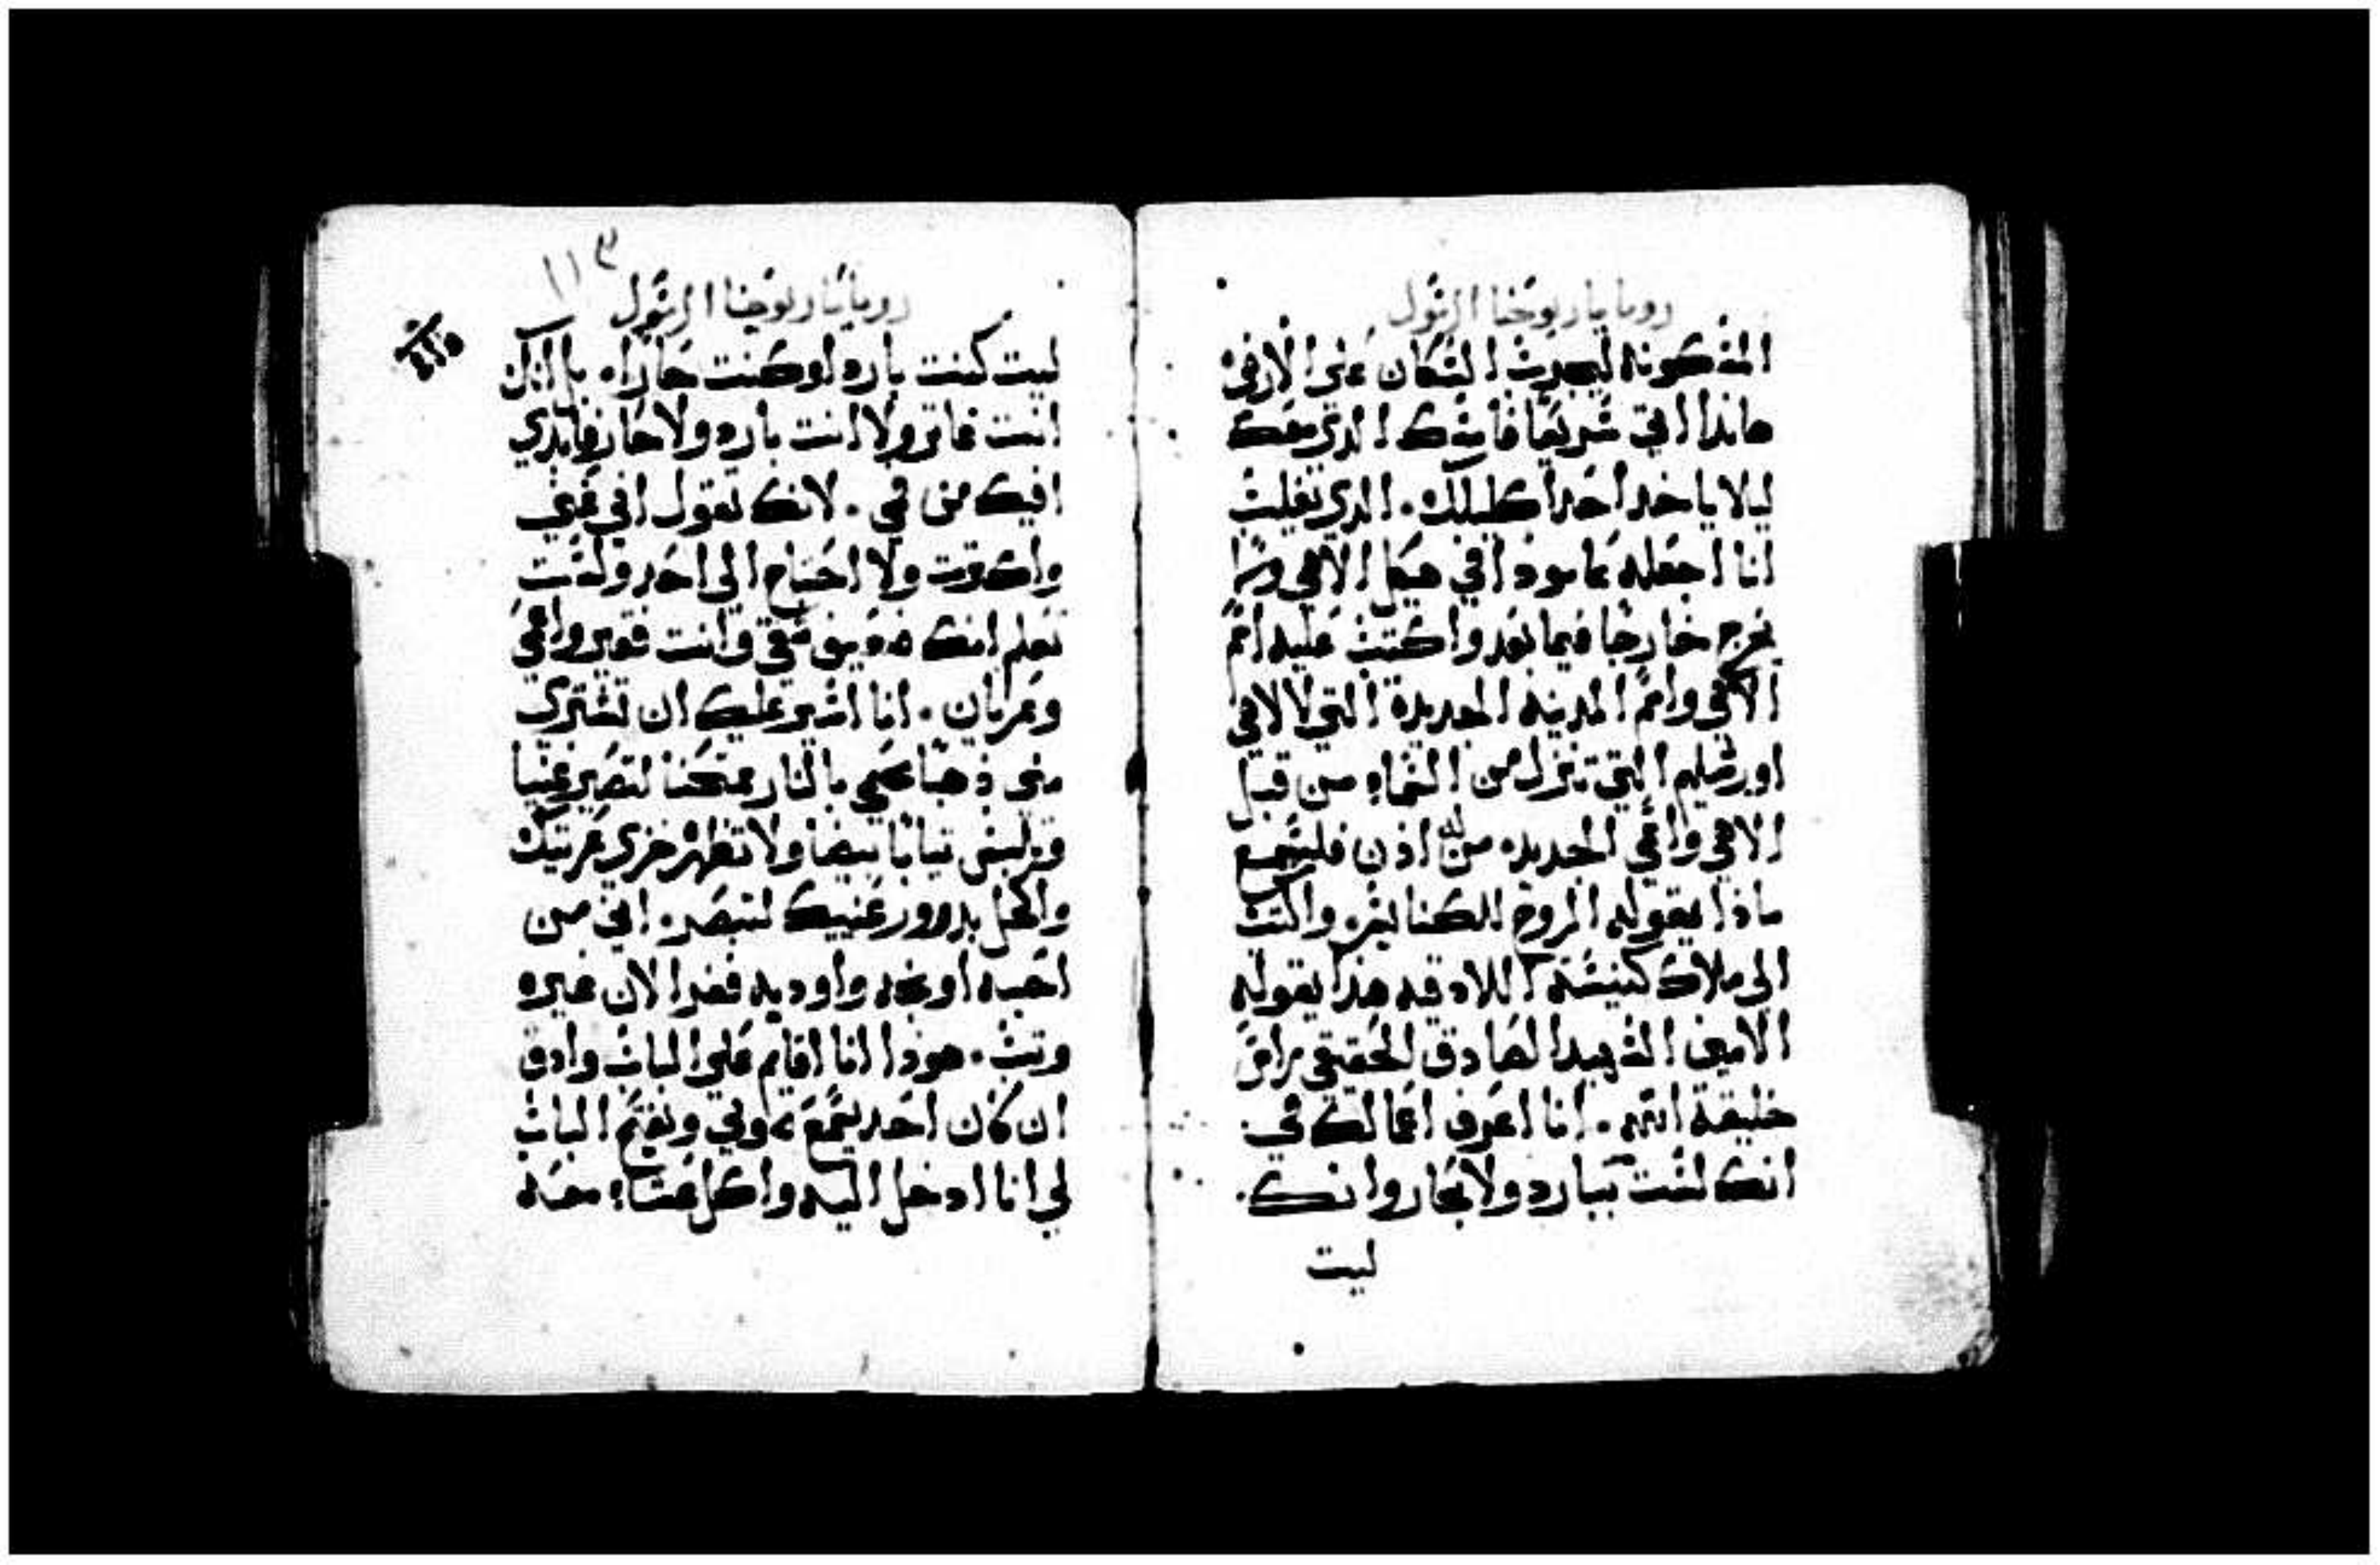 رويا يار يوحنا الرسول
المسكونه ليجرب السكان على الارض
هاندا اتي سريعا فامسك الدي معك
ليلا ياخد احدا كليلك. الدي يغلب
انا اجعله عامودا في هيكل الاهي وما
يخرج خارجا فيما بعد واكتب عليه اسم
الاهي واسم المدينه الجديدة التي لالاهي
اورشليم التي تنزل من السماء من قبل
الاهي واسمي الجديد. من له اذن فليسمع
ماذا يقوله الروح للكنايس. واكتب
الى ملاك كنيسة اللادقيه هذا يقوله
الامين الشهيد الصادق الحقيقي راس
خليقة الله. انا اعرف اعمالك في
انك لست ببارد ولا بحار وانك.
ليت
١١٣
رويا يار يوحنا الرسول
ليت كنت بارد او كنت حارا. بل لانك
انت فاتر ولا انت بارد ولا حار فابدي
اقيك من فمي. لانك تقول اني غني
واكتريت ولا احتاج الى احد ولست
تعلم انك مسكين شقي وانت فقير واعمي
وعريان. انا اشير عليك ان تشتري
مني ذهبا محمي بالنار ممتحنا لتصير غنيا
وتلبس تيابا بيضا ولا تظهر خزي عريتك
واكحل بدرور عينيك لتبصر. اني من
احبه اوبخه واوديه فغير الان غيره
وتب. هودا انا اقايم على الباب وادق
ان كان احد يسمع صوتي ويفتح الباب
لي انا ادخل اليه واكل عشاء معه